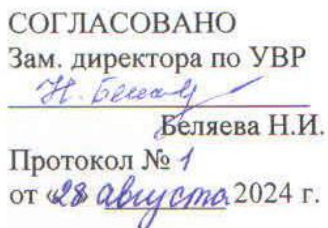 СОГЛАСОВАНО
Зам. директора по УВР
Беляева Н.И.
Протокол № 1
от «28» августа 2024 г.